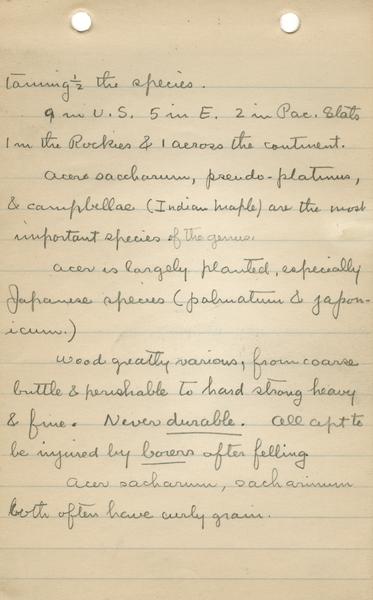 taining ½ the species.
9 in U.S. 5 in E. 2 in Pac. Stats
1 in the Rockies & 1 across the continent.
acer saccharum, pseudo-platinus,
& campbellae (Indian maple) are the most
important species of the genus.
acer is largely planted, especially
Japanese species (palmatum & japon-
icum.)
Wood greatly various, from coarse
brittle & perishable to hard strong heavy
& fine. Never durable. All apt to
be injured by borers after felling.
Acer sacharum, sacharinum
both often have curly grain.